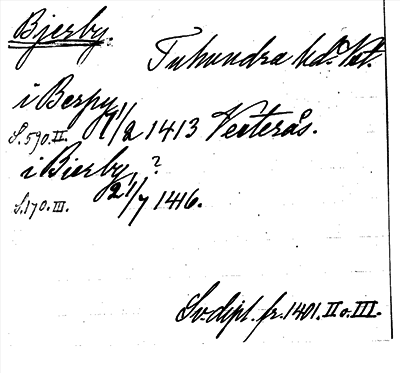 Bjerby.
Tuhundra hd. Vst.
i Berpy
S. 590. II. 1/2 1413 Vesterås.
i Bierby, ?
S. 170. III. 21/7 1416.
Sv. dipl. fr. 1401. II o. III.